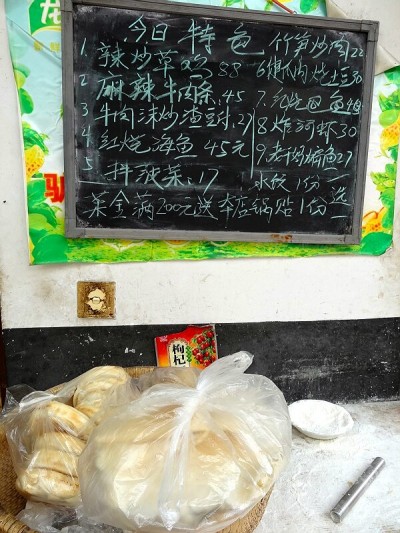 今日特色
1. 辣炒草鸡 88
2 麻辣牛肉条.45
3 牛肉沫炒渣豆付.27
4 红烧海鱼 45元
5 拌菠菜.17
竹笋炒肉22
6 排肉烧土豆30
7.红烧
鱼
8 炸河虾30
9.
鱼27
水饺1份
菜金满200元送本店锅贴1份
枸杞